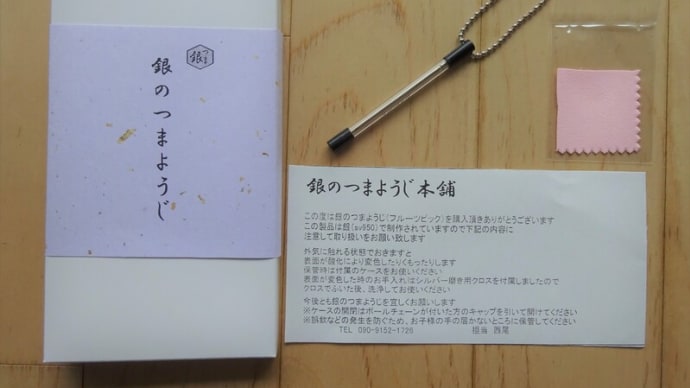 銀のつまようじ
銀つま
銀のつまようじ本舗
この度は銀のつまようじ(フルーツピック)を購入頂きありがとうございます
この製品は銀(sv950)で制作されていますので下記の内容に
注意して取り扱いをお願い致します
外気に触れる状態でおきますと
表面が酸化により変色したりくもったりします
保管時は付属のケースをお使いください
表面が変色した時のお手入れはシルバー磨き用クロスを付属しましたので
クロスでふいた後、洗浄してお使いください
今後とも銀のつまようじを宜しくお願いします
※ケースの開閉はボールチェーンが付いた方のキャップを引いて開けてください
※誤飲などの発生を防ぐため、お子様の手の届かないところに保管してください
TEL 090-9152-1726 担当 西尾